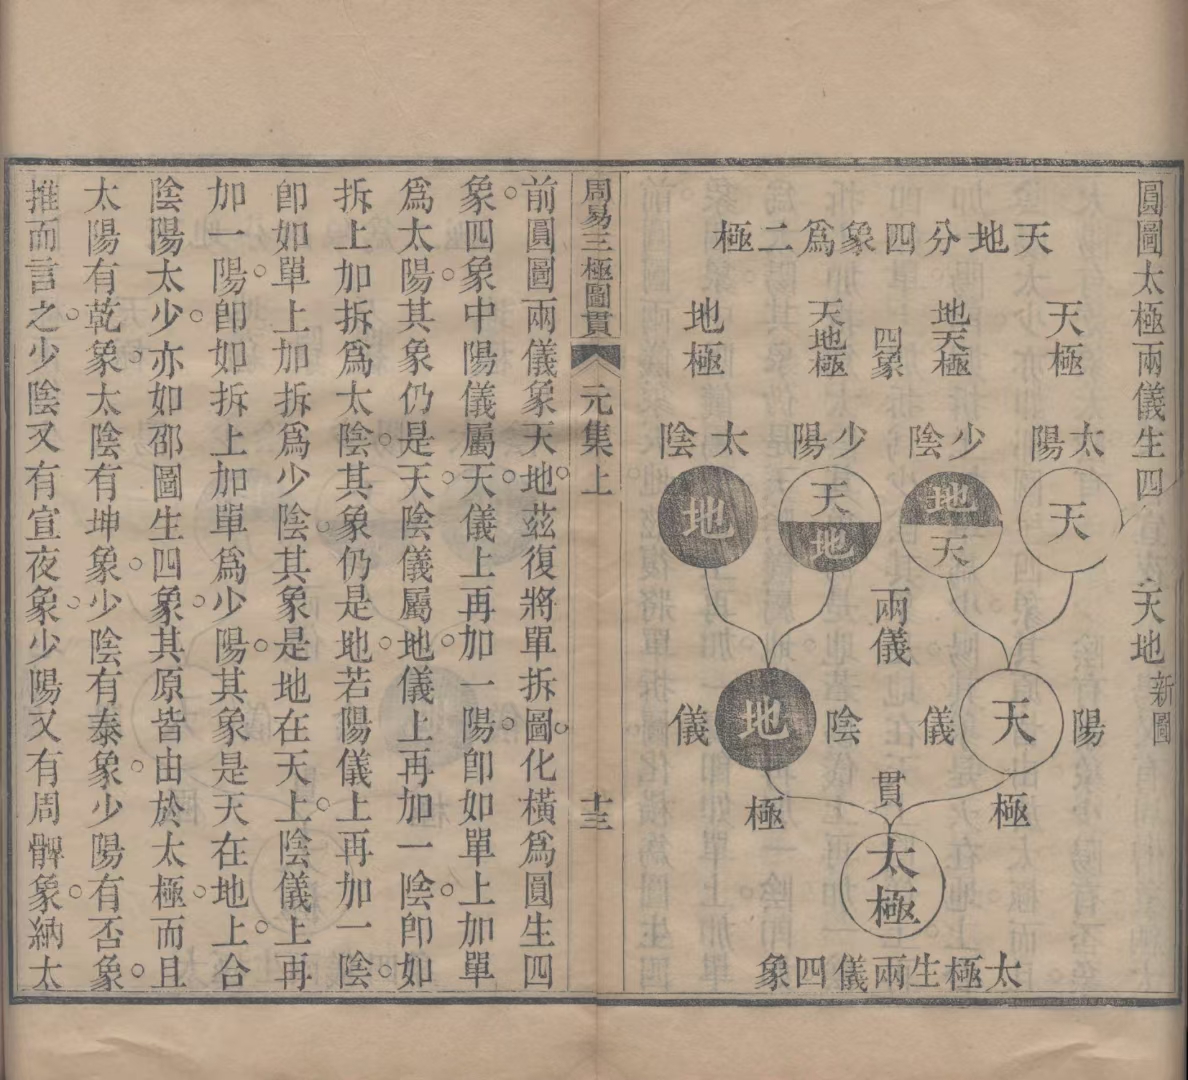 圓圖太極兩儀生四
天地新圖
天地分四象爲二極
天極
地天極
四象
天地極
地極
太陽
少陰
少陽
太陰
天
地
天
天
地
地
兩儀
陽
天
儀
陰
地
儀
極
貫
極
太極
太極生兩儀四象
周易三極圖貫
元集上
十三
前圓圖兩儀象天地。茲復將單拆圖。化橫爲圓生四
象。四象中陽儀屬天。儀上再加一陽。卽如單上加單
爲太陽。其象仍是天。陰儀屬地。儀上再加一陰。卽如
拆上加拆爲太陰。其象仍是地。若陽儀上再加一陰。
卽如單上加拆爲少陰。其象是地在天上。陰儀上再
加一陽。卽如拆上加單爲少陽。其象是天在地上。合
陰陽太少。亦如邵圖生四象。其原皆由於太極。而且
太陽有乾象太陰有坤象。少陰有泰象。少陽有否象。
推而言之。少陰又有宣夜象。少陽又有周髀象。納太